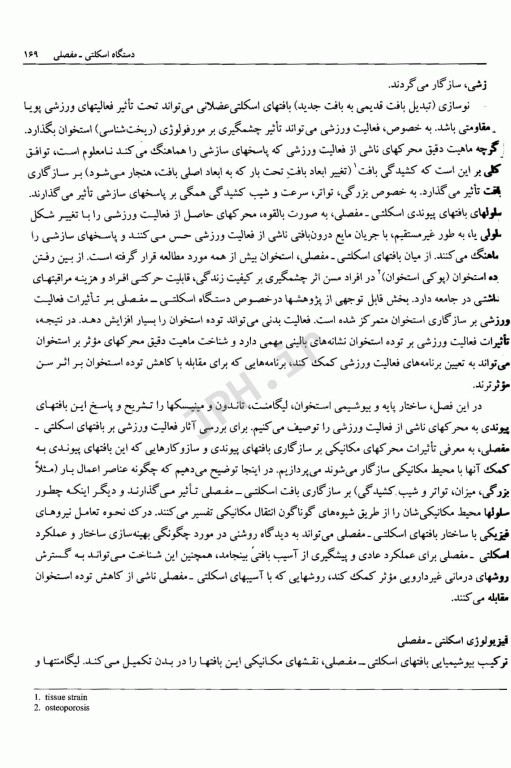 دستگاه اسکلتی ـ مفصلی ۱۶۹
زشی، سازگار می‌گردند.
نوسازی (تبدیل بافت قدیمی به بافت جدید) بافتهای اسکلتی‌عضلانی می‌تواند تحت تأثیر فعالیتهای ورزشی پویا
مقاومتی باشد. به خصوص، فعالیت ورزشی می‌تواند تأثیر چشمگیری بر مورفولوژی (ریخت‌شناسی) استخوان بگذارد.
گرچه ماهیت دقیق محرکهای ناشی از فعالیت ورزشی که پاسخهای سازشی را هماهنگ می‌کند نامعلوم است، توافق
کلی بر این است که کشیدگی بافت۱ (تغییر ابعاد بافتِ تحت بار که به ابعاد اصلی بافت، هنجار می‌شود) بر سازگاری
بافت تأثیر می‌گذارد. به خصوص بزرگی، تواتر، سرعت و شیب کشیدگی همگی بر پاسخهای سازشی تأثیر می‌گذارند.
سلولهای بافتهای پیوندی اسکلتی ـ مفصلی، به صورت بالقوه، محرکهای حاصل از فعالیت ورزشی را با تغییر شکل
سلولی یا، به طور غیرمستقیم، با جریان مایع درون‌بافتی ناشی از فعالیت ورزشی حس می‌کنند و پاسخهای سازشی را
ماهنگ می‌کنند. از میان بافتهای اسکلتی ـ مفصلی، استخوان بیش از همه مورد مطالعه قرار گرفته است. از بین رفتن
ده استخوان (پوکی استخوان)۲ در افراد مسن اثر چشمگیری بر کیفیت زندگی، قابلیت حرکتی افراد و هزینه مراقبتهای
ناشتی در جامعه دارد. بخش قابل توجهی از پژوهشها درخصوص دستگاه اسکلتی ـ مفصلی بر تأثیرات فعالیت
ورزشی بر سازگاری استخوان متمرکز شده است. فعالیت بدنی می‌تواند توده استخوان را بسیار افزایش دهد. در نتیجه،
تأثیرات فعالیت ورزشی بر توده استخوان نشانه‌های بالینی مهمی دارد و شناخت ماهیت دقیق محرکهای مؤثر بر استخوان
می‌تواند به تعیین برنامه‌های فعالیت ورزشی کمک کند، برنامه‌هایی که برای مقابله با کاهش توده استخوان بر اثر سن
مؤثرترند.
در این فصل، ساختار پایه و بیوشیمی استخوان، لیگامنت، تاندون و مینیسکها را تشریح و پاسخ این بافتهای
پیوندی به محرکهای ناشی از فعالیت ورزشی را توصیف می‌کنیم. برای بررسی آثار فعالیت ورزشی بر بافتهای اسکلتی ـ
مفصلی، به معرفی تأثیرات محرکهای مکانیکی بر سازگاری بافتهای پیوندی و سازوکارهایی که این بافتهای پیوندی به
کمک آنها با محیط مکانیکی سازگار می‌شوند می‌پردازیم. در اینجا توضیح می‌دهیم که چگونه عناصر اعمال بار (مثلاً
بزرگی، میزان، تواتر و شیب کشیدگی) بر سازگاری بافت اسکلتی ـ مفصلی تأثیر می‌گذارند و دیگر اینکه چطور
سلولها محیط مکانیکی‌شان را از طریق شیوه‌های گوناگون انتقال مکانیکی تفسیر می‌کنند. درک نحوه تعامل نیروهای
فیزیکی با ساختار بافتهای اسکلتی ـ مفصلی می‌تواند به دیدگاه روشنی در مورد چگونگی بهینه‌سازی ساختار و عملکرد
اسکلتی ـ مفصلی برای عملکرد عادی و پیشگیری از آسیب بافتی بینجامد، همچنین این شناخت می‌تواند به گسترش
روشهای درمانی غیردارویی مؤثر کمک کند، روشهایی که با آسیبهای اسکلتی ـ مفصلی ناشی از کاهش توده استخوان
مقابله می‌کنند.
فیزیولوژی اسکلتی ـ مفصلی
ترکیب بیوشیمیایی بافتهای اسکلتی ـ مفصلی، نقشهای مکانیکی این بافتها را در بدن تکمیل می‌کند. لیگامنتها و
1. tissue strain
2. osteoporosis